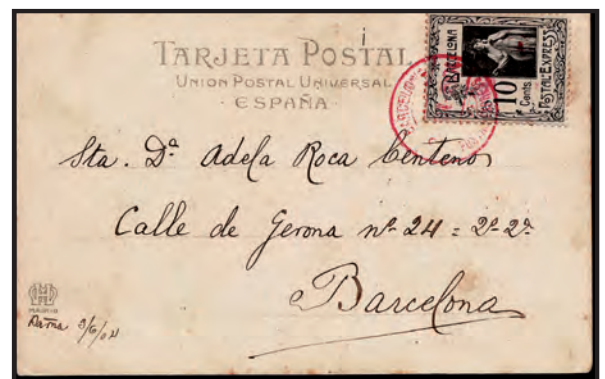 TARJETA POSTAL
UNION POSTAL UNIVERSAL
- ESPAÑA -
BARCELONA
10
Cents.
POSTAL EXPRESS
BARCELON
Sta. Dª Adela Roca Centenos
Calle de Gerona nº 24 = 2º 2ª
Barcelona
MADRID
3/6/04